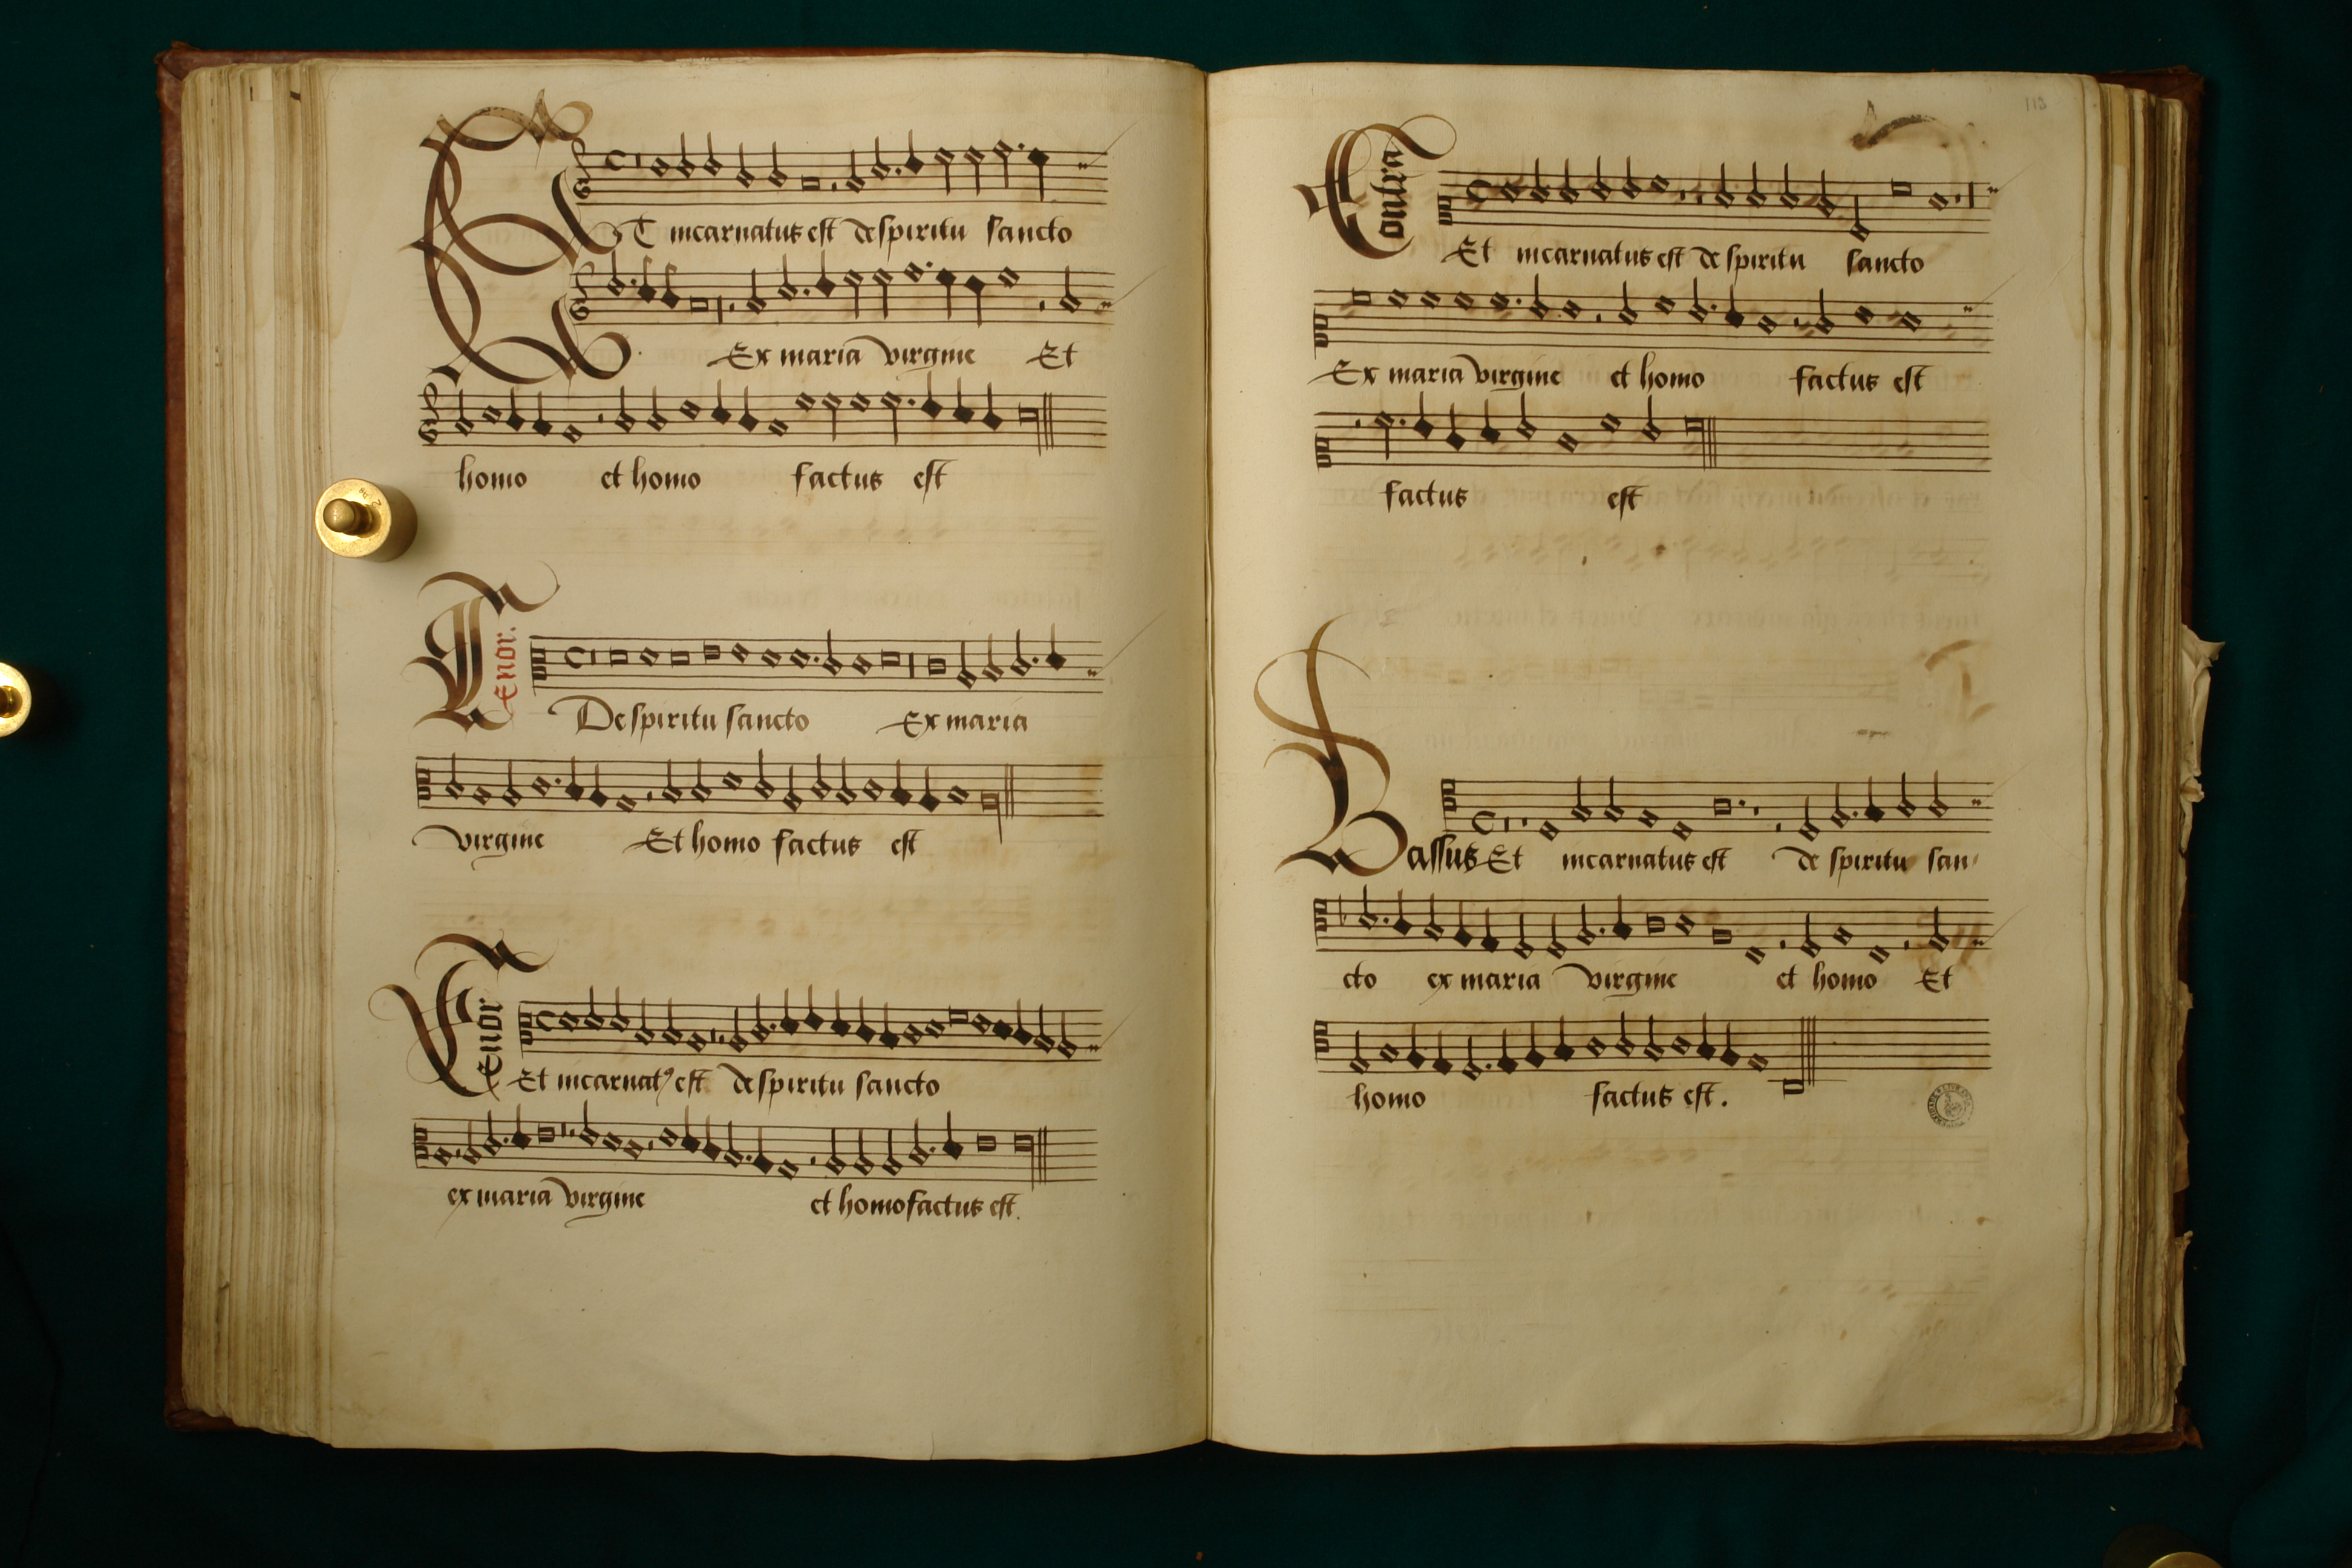 ET incarnatus est de spiritu sancto
Ex maria virgine Et
homo et homo factus est
Tenor.
De spiritu sancto Ex maria
virgine Et homo factus est
Tenor
Et incarnatꝰ est de spiritu sancto
ex maria virgine et homo factus est.
113
Contra
Et incarnatus est de spiritu sancto
Ex maria virgine et homo factus est
factus est
Bassus Et incarnatus est de spiritu san
cto ex maria virgine et homo Et
homo factus est.